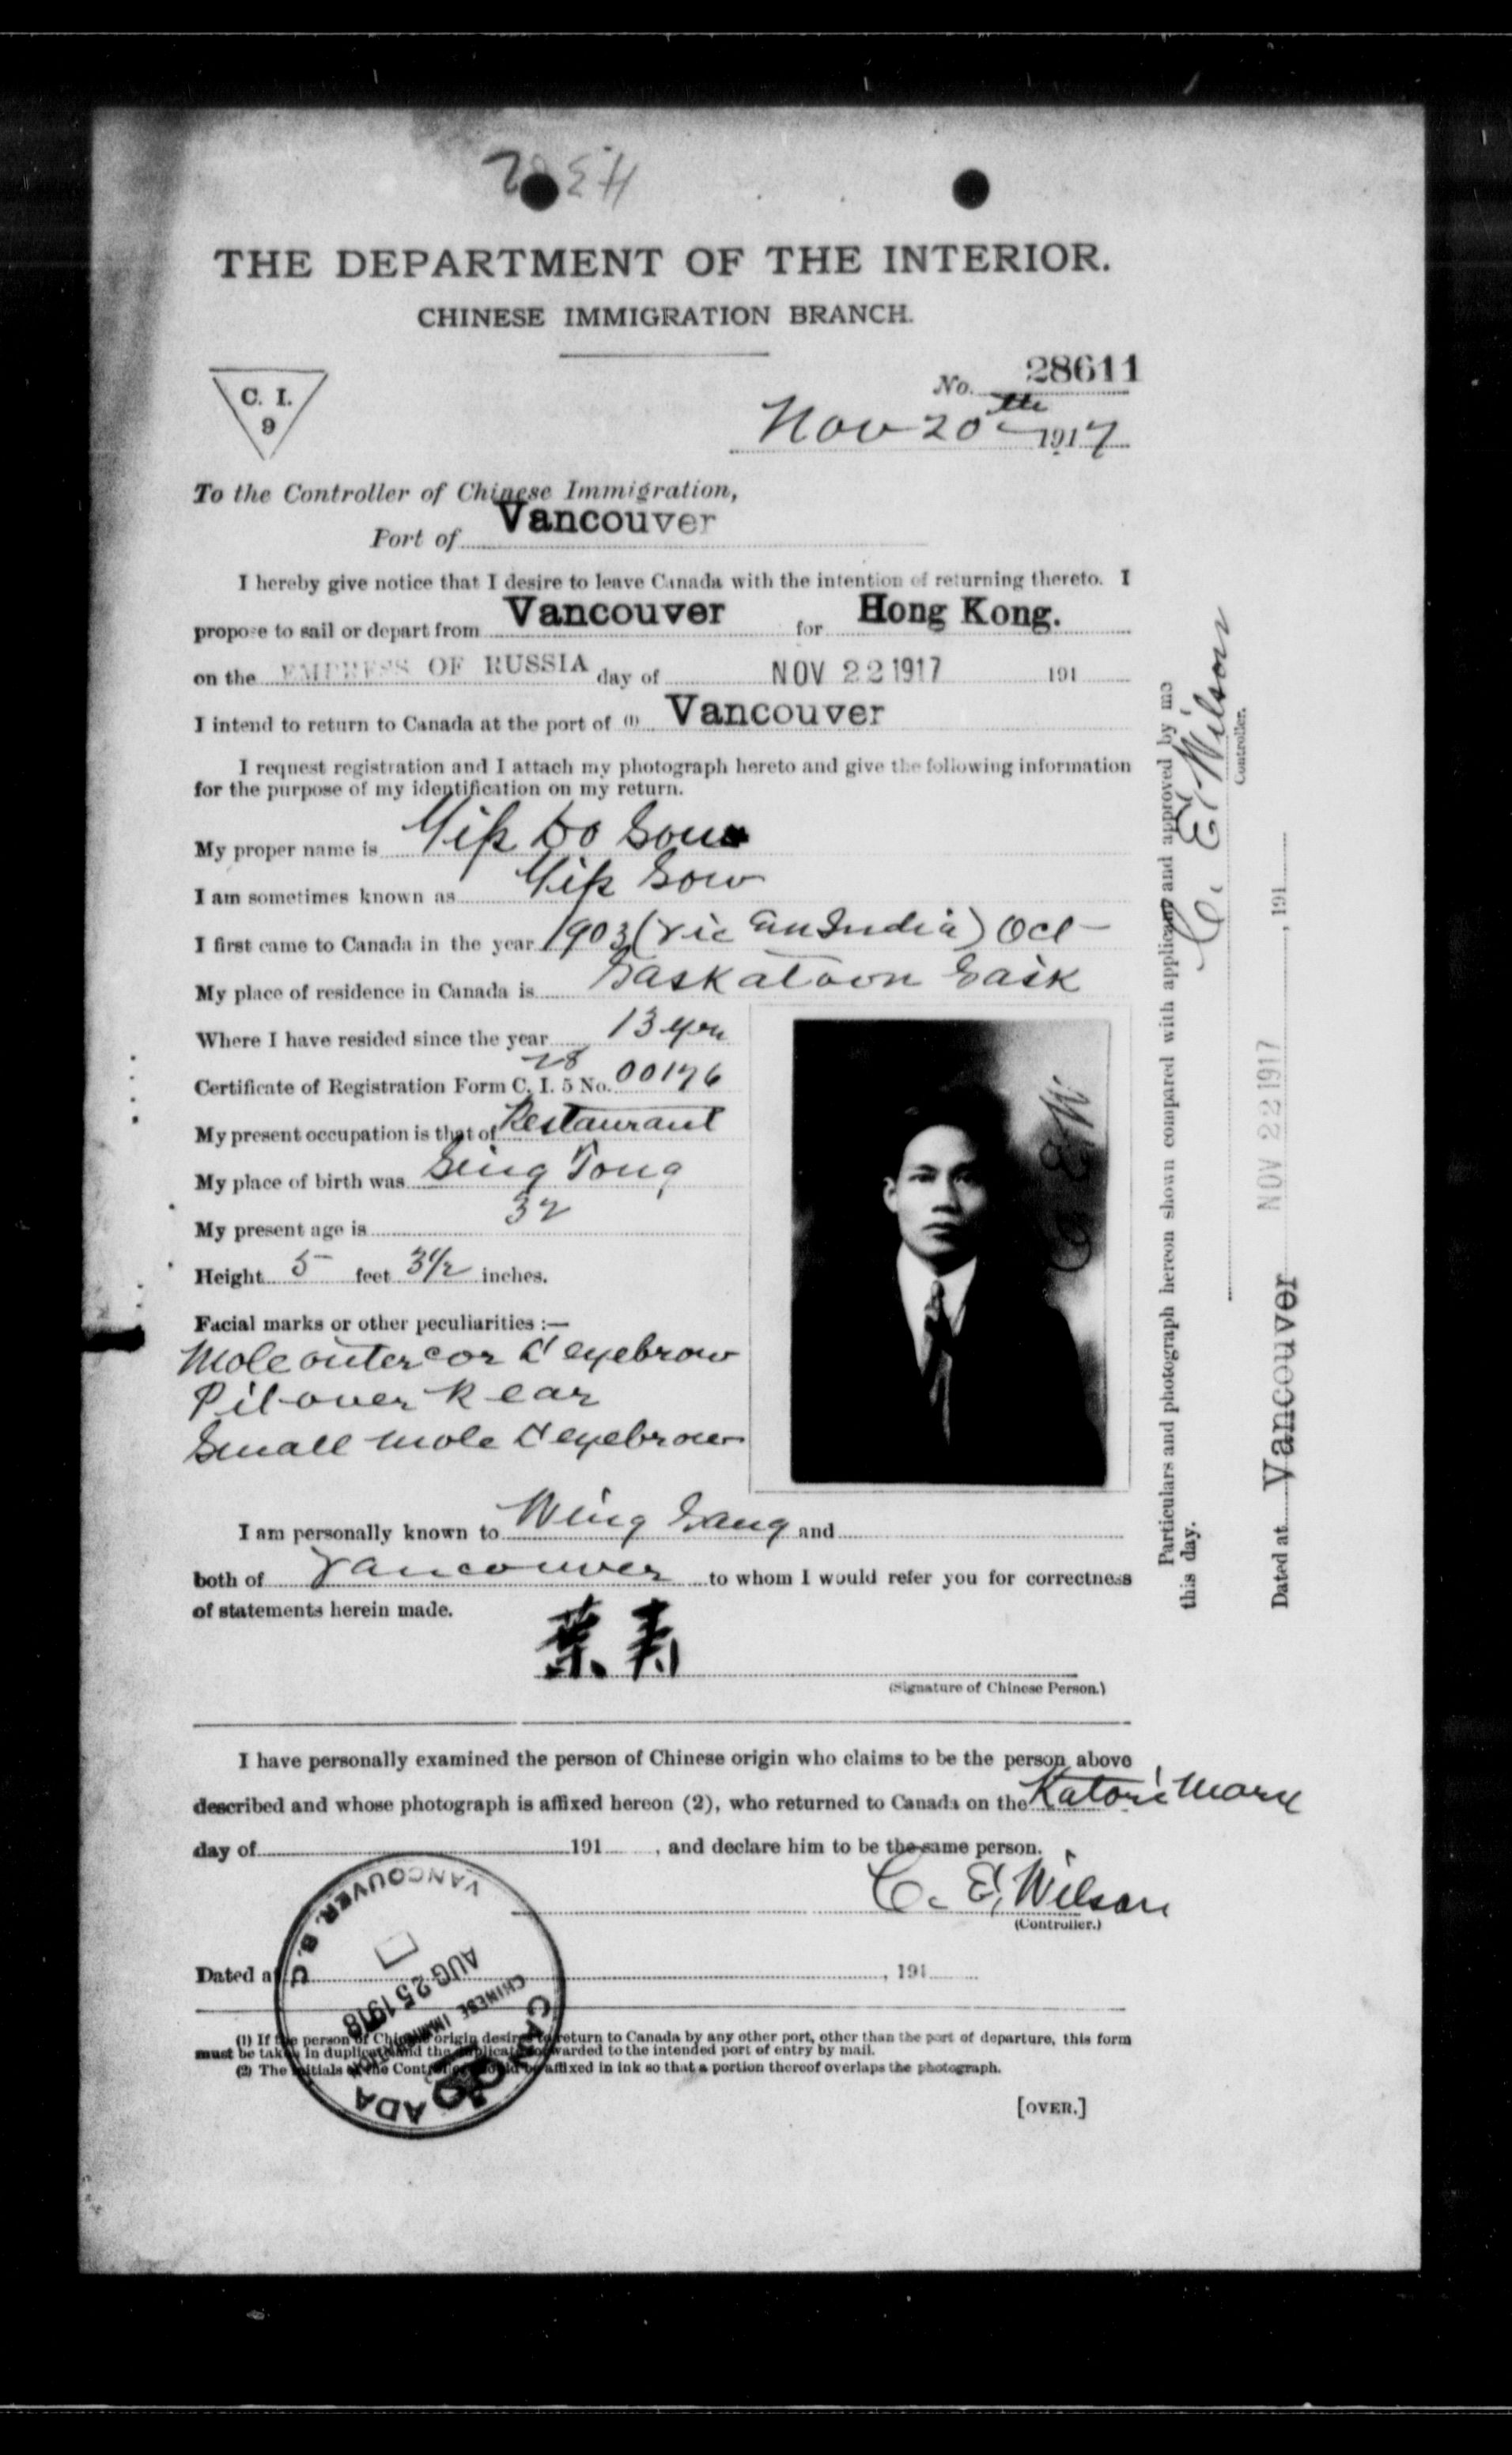 THE DEPARTMENT OF THE INTERIOR.
CHINESE IMMIGRATION BRANCH.
C. I.
9
No. 28611
Nov 20th 1917
To the Controller of Chinese Immigration,
Port of Vancouver
I hereby give notice that I desire to leave Canada with the intention of returning thereto. I
propose to sail or depart from Vancouver for Hong Kong.
on the EMPRESS OF RUSSIA day of NOV 22 1917 191
I intend to return to Canada at the port of (1) Vancouver
I request registration and I attach my photograph hereto and give the following information
for the purpose of my identification on my return.
My proper name is Yip Do Sow
I am sometimes known as Yip Sow
I first came to Canada in the year 1903 (Vic Em India) Oct
My place of residence in Canada is Saskatoon Sask
Where I have resided since the year 13 yrs
Certificate of Registration Form C. I. 5 No. 28 00176
My present occupation is that of Restaurant
My place of birth was Sing Tong
My present age is 32
Height 5 feet 3 1/2 inches.
Facial marks or other peculiarities :—
Mole outer cor L eyebrow
Pit over R ear
Small mole L eyebrow
C E W
I am personally known to Wing Sang and
both of Vancouver to whom I would refer you for correctness
of statements herein made.
葉寿
(Signature of Chinese Person.)
I have personally examined the person of Chinese origin who claims to be the person above
described and whose photograph is affixed hereon (2), who returned to Canada on the Katori Maru
day of 191 , and declare him to be the same person.
C. E. Wilson
(Controller.)
Dated at , 191
(1) If the person of Chinese origin desires to return to Canada by any other port, other than the port of departure, this form
must be taken in duplicate and the duplicate forwarded to the intended port of entry by mail.
(2) The initials of the Controller should be affixed in ink so that a portion thereof overlaps the photograph.
[OVER.]
VANCOUVER, B. C.
AUG 25 1918
CHINESE IMMIGRATION
CANADA
Particulars and photograph hereon shown compared with applicant and approved by me
this day.
C. E. Wilson
Controller.
Dated at Vancouver NOV 22 1917 , 191